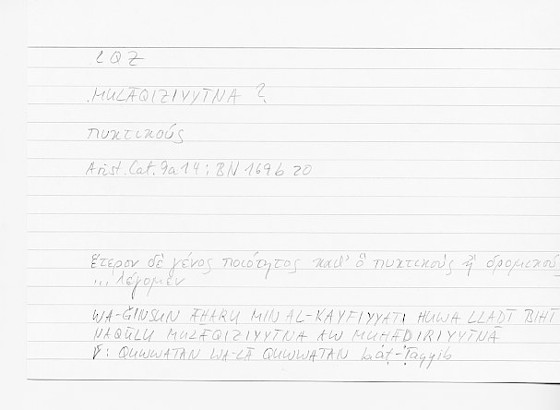 LQZ
MULĀQIZIYYĪNA ?
πυκτικούς
Arist. Cat. 9a14; BN 169b 20
ἕτερον δὲ γένος ποιότητος καθ' ὃ πυκτικοὺς ἢ δρομικοὺς
... λέγομεν
WA-ĞINSUN ĀḪARU MIN AL-KAYFIYYATI HUWA LLAḎĪ BIHĪ
NAQŪLU MULĀQIZIYYĪNA AW MUḤĀḌIRIYYĪNA
QUWWATAN WA-LĀ QUWWATAN